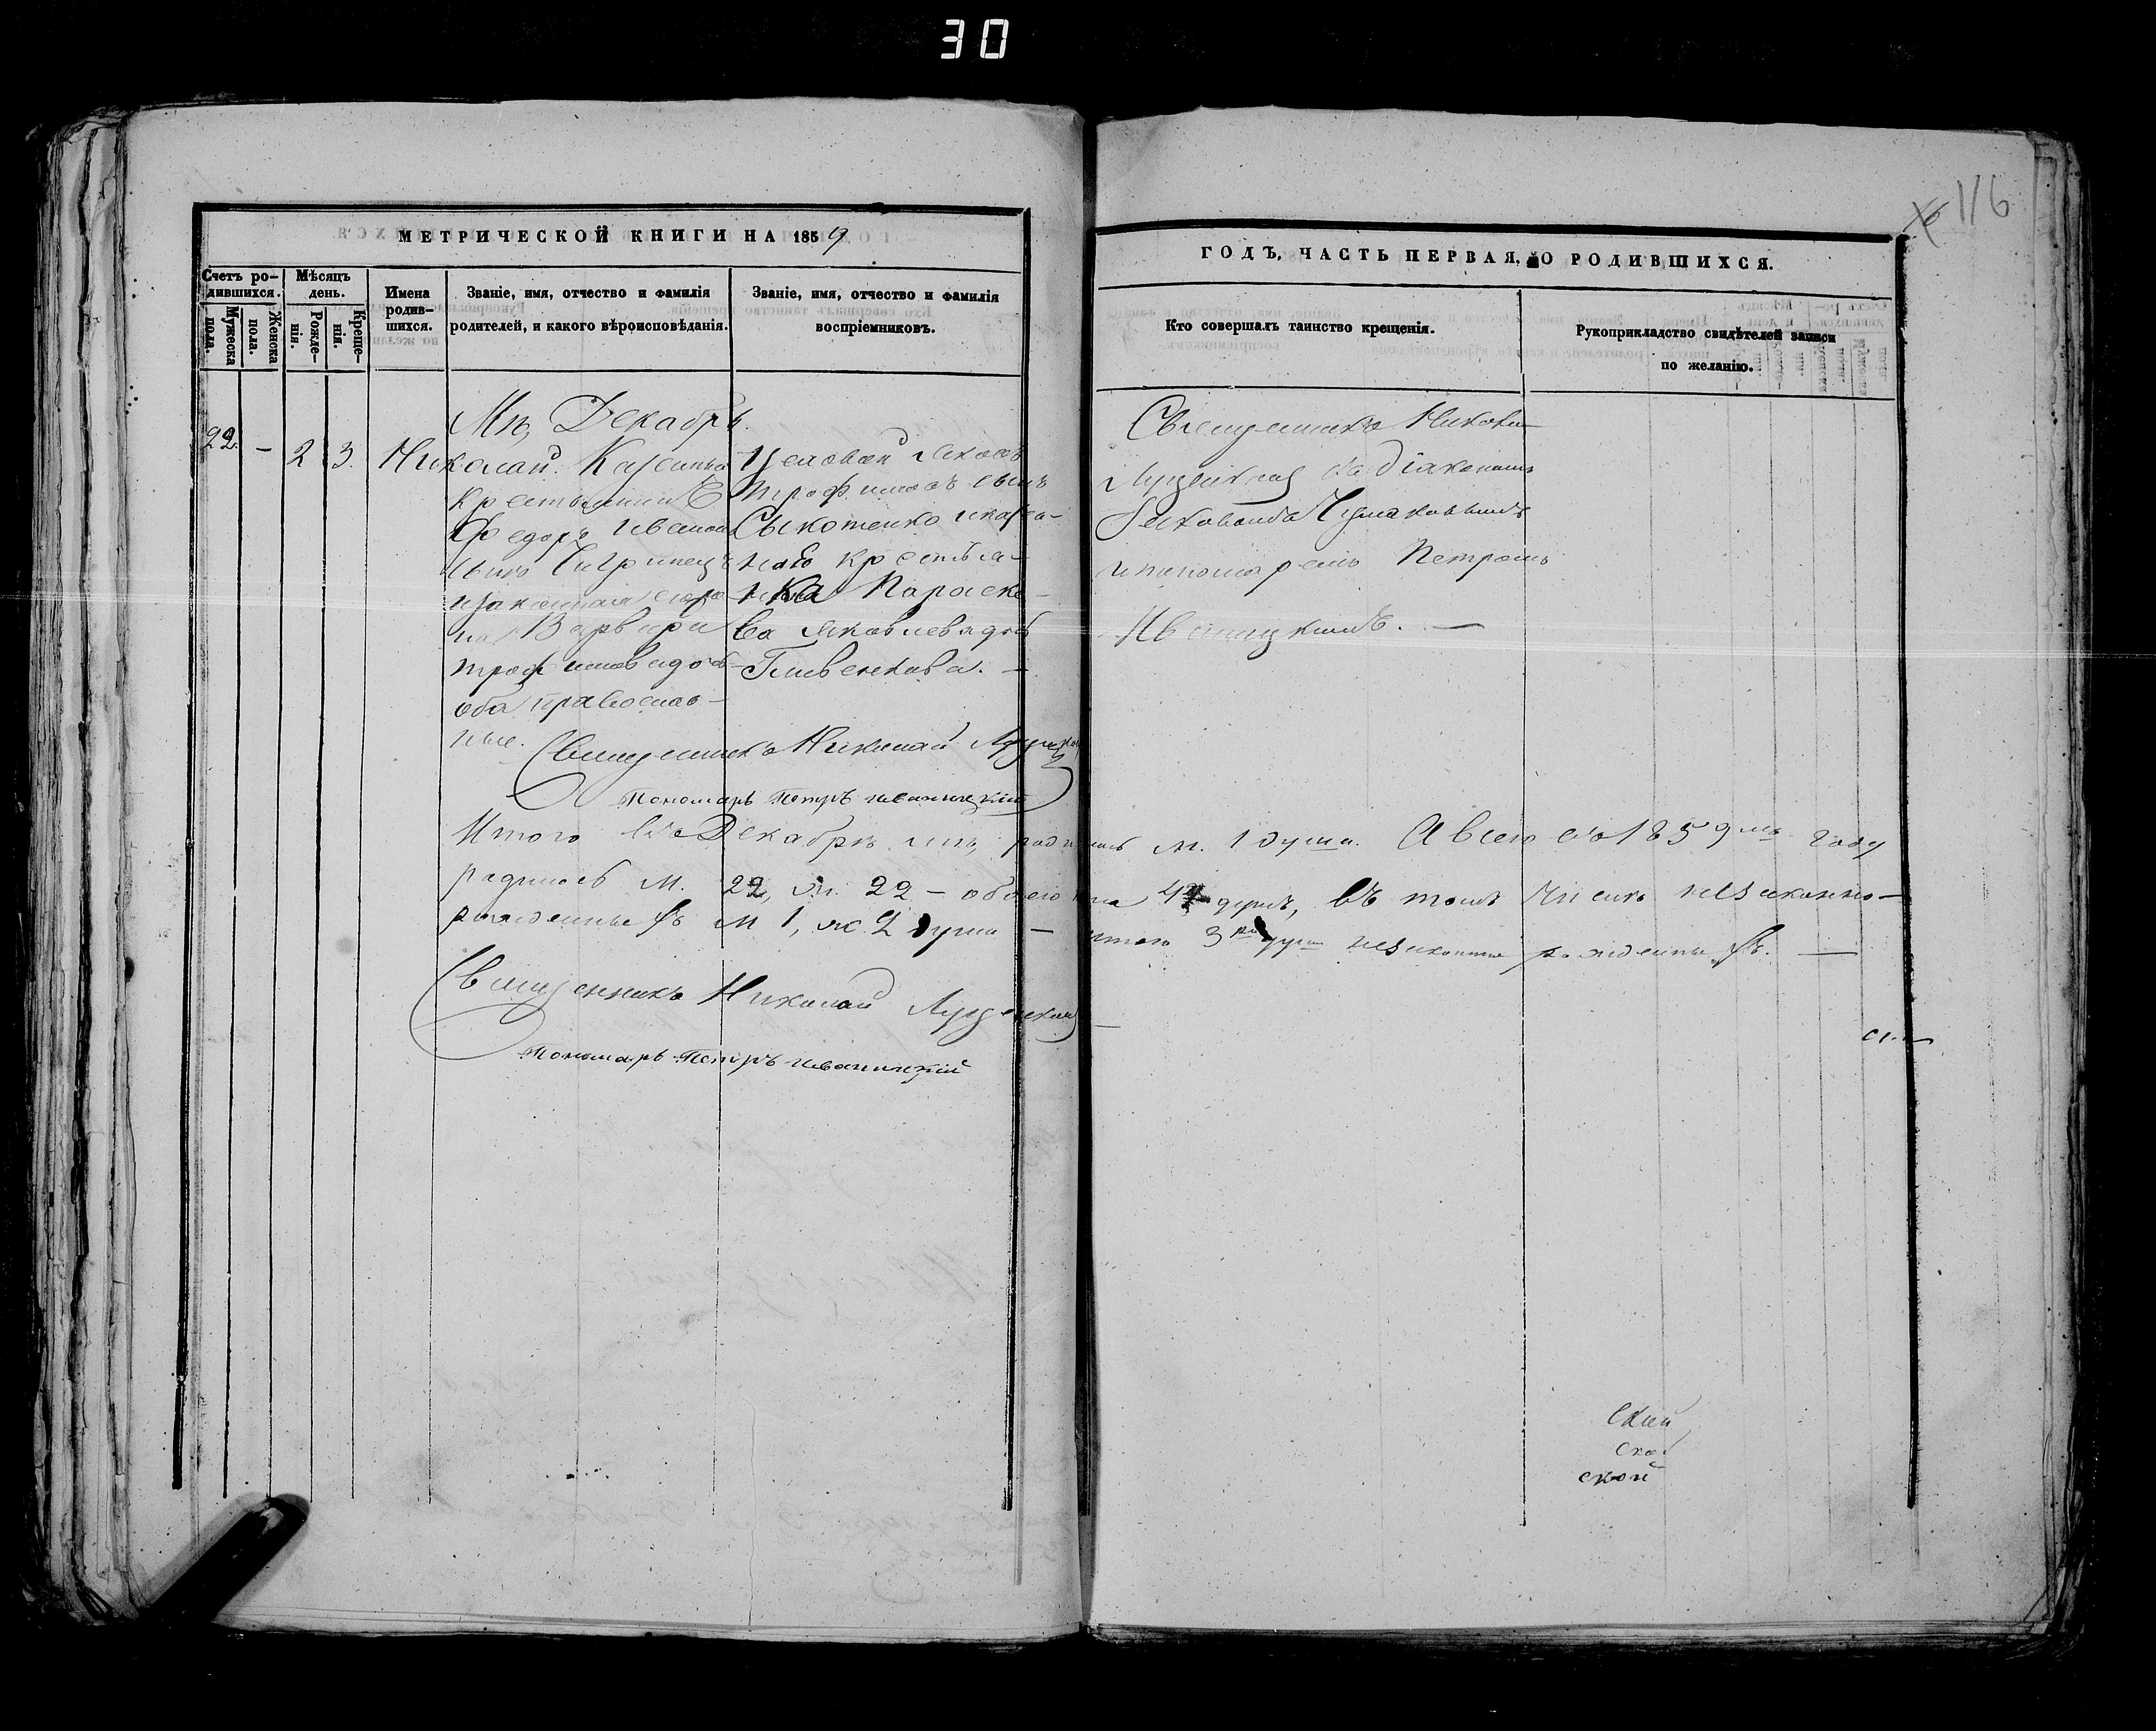 30
116
МЕТРИЧЕСКОЙ КНИГИ НА 1859
ГОДЪ, ЧАСТЬ ПЕРВАЯ, О РОДИВШИХСЯ.
Счетъ ро-
дившихся.
Мужеска
пола.
Женска
пола.
Мѣсяцъ
день.
Рожде-
нія.
Креще-
нія.
Имена
родив-
шихся.
Званіе, имя, отчество и фамилія
родителей, и какого вѣроисповѣданія.
Званіе, имя, отчество и фамилія
воспріемниковъ.
Кто совершалъ таинство крещенія.
Рукоприкладство свидѣтелей записи
по желанію.
Мц. Декабрь.
22. – 2 3. Николай.
крестьянинъ
Федоръ Иванов
сынъ
и законная его же-
на Варвара
Трофимова доч
оба православ-
ные.
Трофимовъ сынъ
Сыкотенко и каза-
крестья-
нка Параске-
ва Яковлева доч
Гливенкова. –
Священникъ Никола-
съ діакономъ
и пономаремъ Петромъ
Иваницкимъ. –
Священникъ Николай
Пономарь Петръ Иваницкій
Итого въ Декабрѣ мцѣ родилось м. 1 душа. А всего въ 1859мъ году
родилось м. 22, ж. 22 – обоего пола душъ, въ томъ числѣ незаконно-
рожденныхъ м 1, ж. 2 души – итого 3 души незаконно рожденныхъ. –
Священникъ Николай
Пономарь Петръ Иваницкій
ской
ской